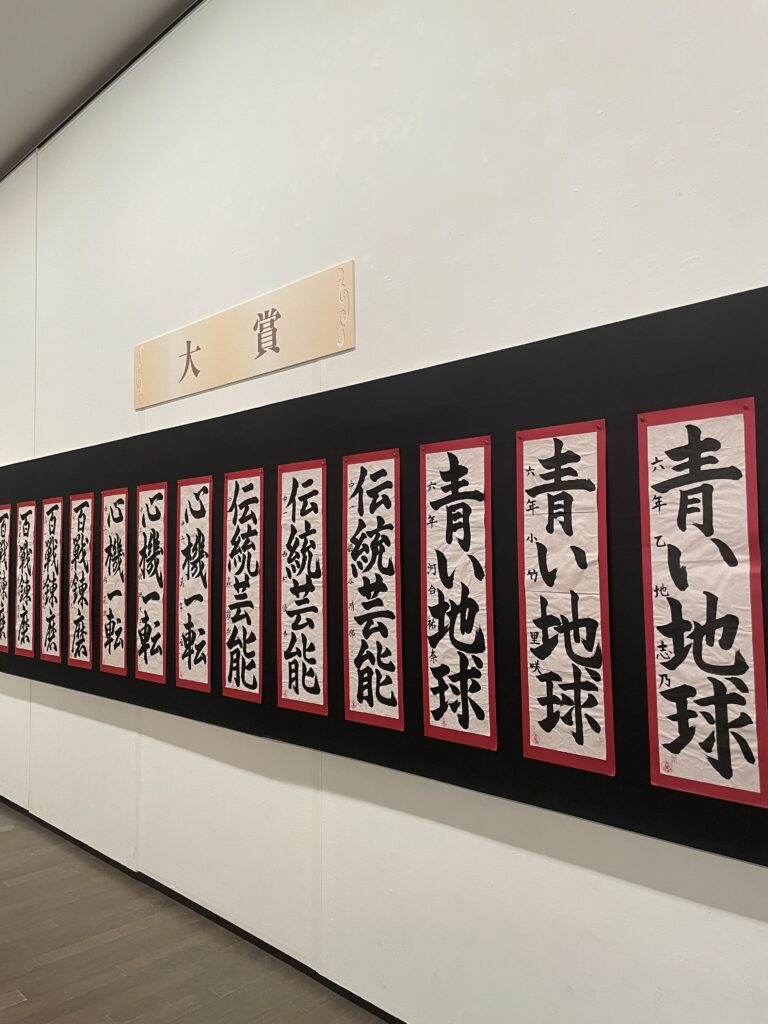 大賞
青い地球
六年 乙地志乃
青い地球
六年 小竹里咲
青い地球
六年 河合祐奈
伝統芸能
伝統芸能
伝統芸能
心機一転
心機一転
心機一転
百戦錬磨
百戦錬磨
百戦錬磨
百戦錬磨